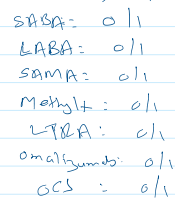 SABA: 0/1
LABA: 0/1
SAMA: 0/1
Methylx: 0/1
LTRA: 0/1
Omalizumab: 0/1
OCS : 0/1